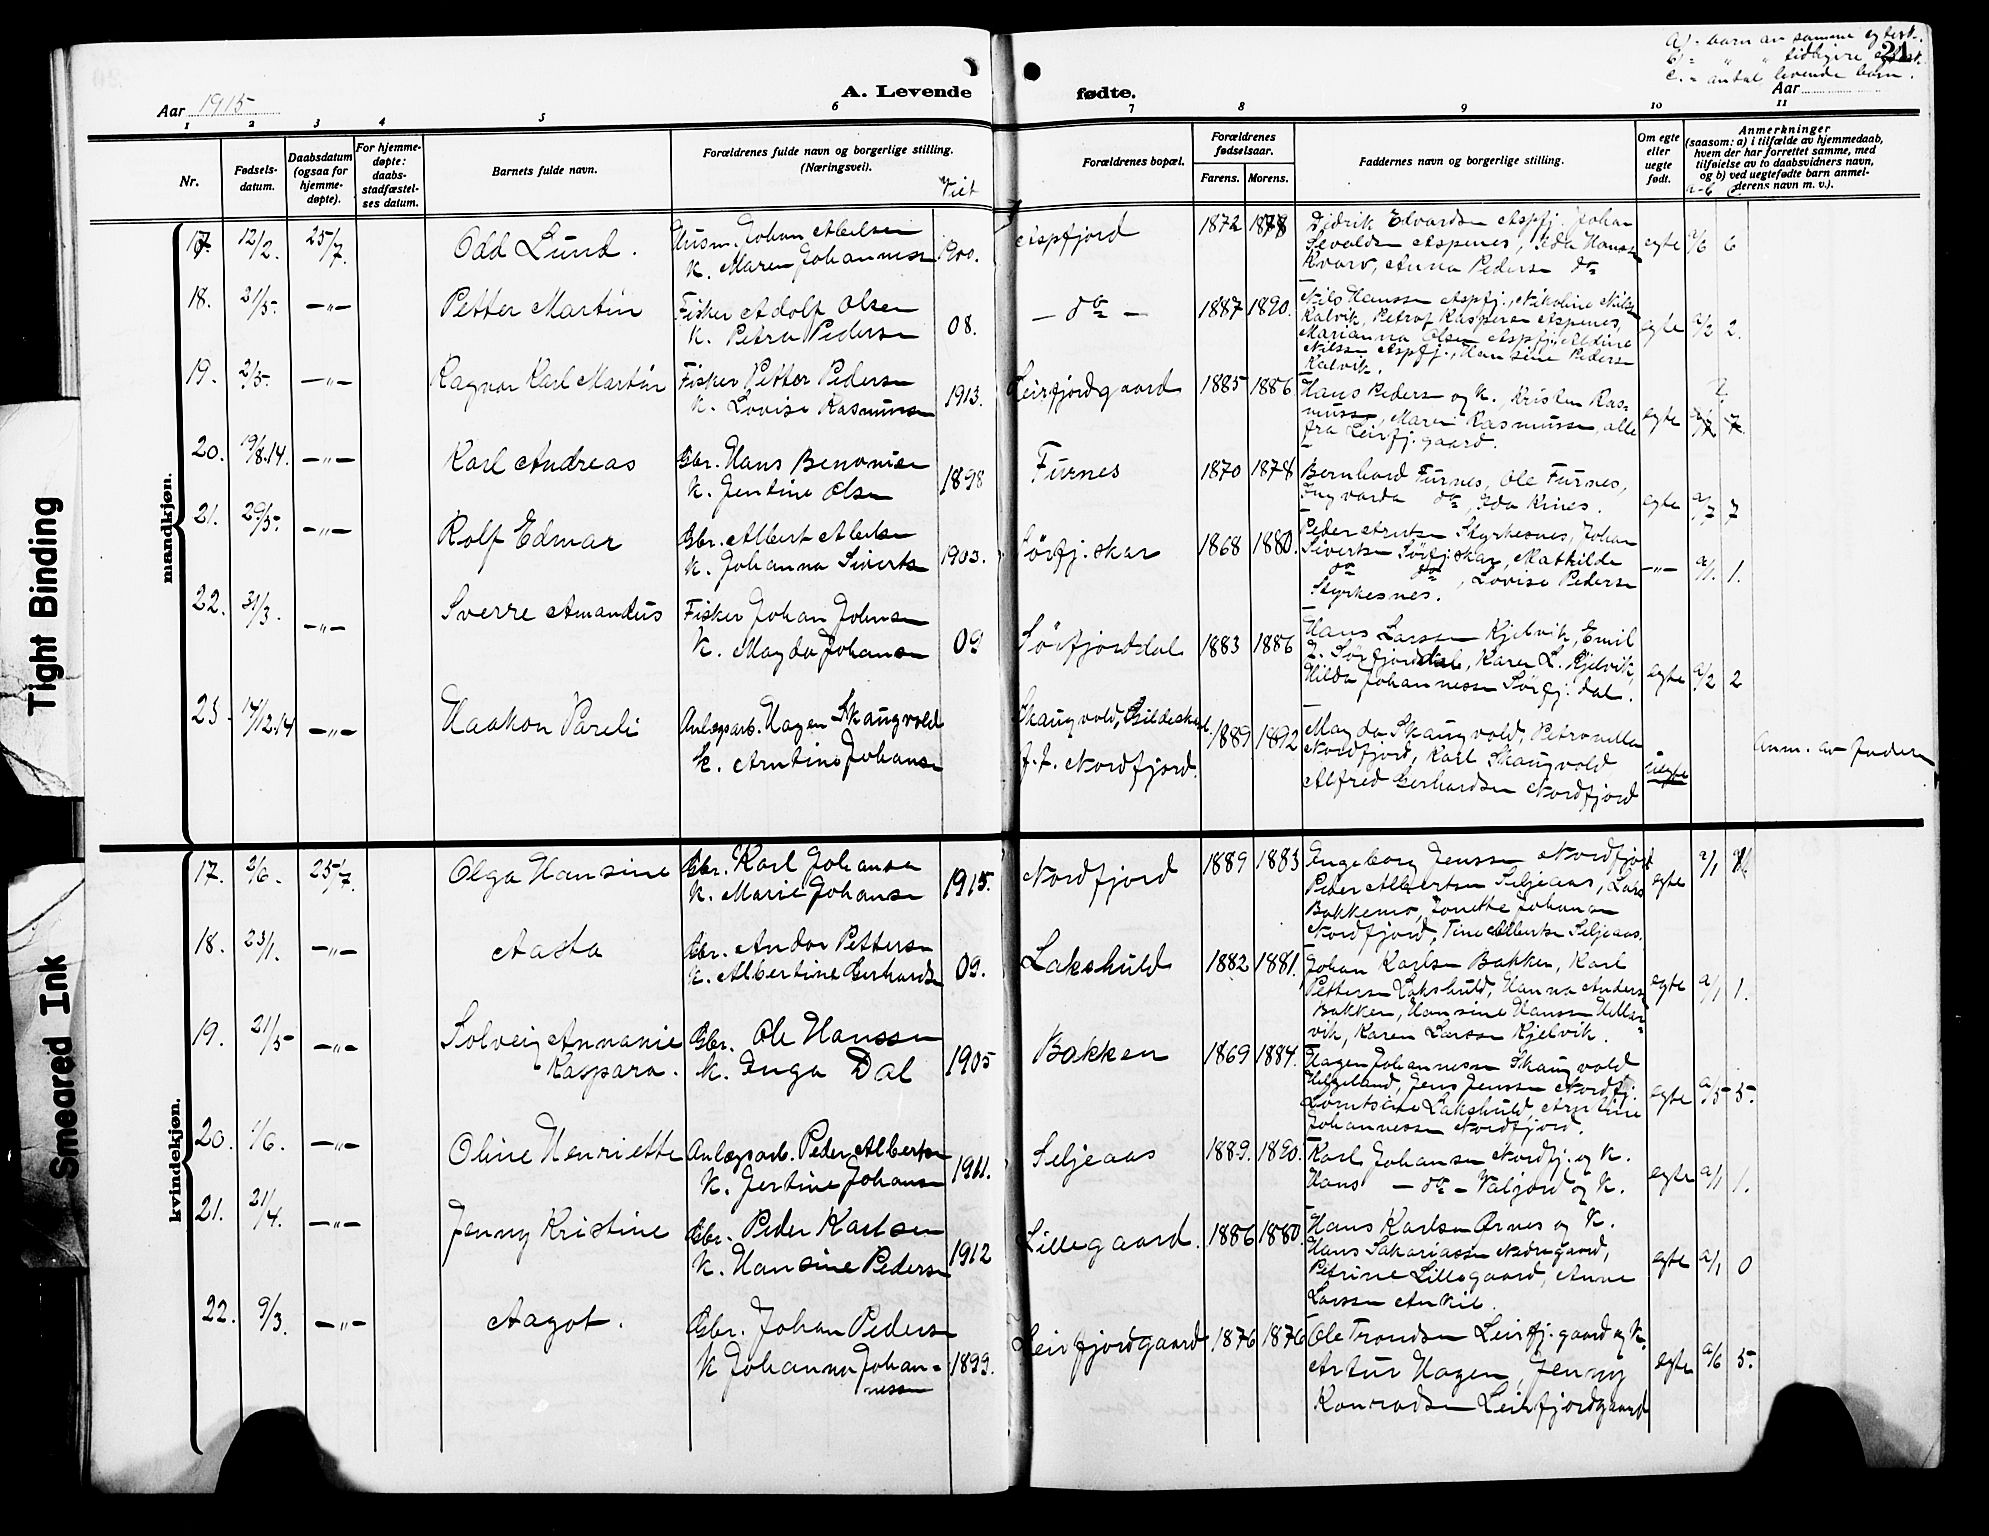 a) - barn av samme egtesk.
b) = " " tidligere egtesk.
c. = antal levende barn.
21
Aar 1915
A. Levende fødte.
Aar
1 2 3 4 5 6 7 8 9 10 11
Nr.
Fødsels-
datum.
Daabsdatum
(ogsaa for
hjemme-
døpte).
For hjemme-
døpte:
daabs-
stadfæstel-
ses datum.
Barnets fulde navn.
Forældrenes fulde navn og borgerlige stilling.
(Næringsvei).
Viet
Forældrenes bopæl.
Forældrenes
fødselsaar.
Farens. Morens.
Faddernes navn og borgerlige stilling.
Om egte
eller
uegte
født.
Anmerkninger
(saasom: a) i tilfælde av hjemmedaab,
hvem der har forrettet samme, med
tilføielse av to daabsvidners navn,
og b) ved uegtefødte barn anmel-
derens navn m. v.).
a-b c
mandkjøn.
17. 12/2. 25/7. Odd Lund.
Husm. Johan Albertsen
K. Maren Johannesen
1900.
Aspfjord 1872 1878
Didrik Edvardsen Aspfj. Johan
Sevaldsen Aspenes, Hanssen
Kvarv, Anna Pedersen do
egte a/6 6
18. 21/5. -"- Petter Martin
Fisker Adolf Olsen
K. Petra Pedersen
08.
- do - 1887 1890.
Nils Hanssen Aspfj., Nikoline Nilsen
Kalvik, Petrof Kaspersen Aspenes,
Marianna Olsen Aspfj., Aldine
Nilssen Aspfj., Hansine Pedersen
Kalvik.
egte a/2 2.
19. 2/5. -"- Ragnar Karl Martin
Fisker Petter Pedersen
K. Lovise Rasmussen
1913.
Leirfjordgaard 1885 1886
Hans Pedersen og K., Kristen Ras-
mussen, Maren Rasmussen, alle
fra Leirfj.gaard.
egte
20. 19/8.14. -"- Karl Andreas
Gbr. Hans Benonisen
K. Jentine Olsen
1898
Furnes 1870 1878
Bernhard Furnes, Ole Furnes,
Ingvarda do, Ida Rines.
egte a/7 7
21. 29/5. -"- Rolf Edmar
Gbr. Albert Albertsen
K. Johanna Sivertsen
1903.
Sörfj. skar 1868 1880.
Peder Arntsen Styrkesnes, Johan
Sivertsen Sörfjskar, Mathilde
do do, Lovise Pedersen
Styrkesnes.
-"- a/1. 1.
22. 31/3. -"- Sverre Amandus
Fisker Johan Johnsen
K. Magda Johansen
09
Sörfjorddal 1883 1886
Hans Larssen Kjelvik, Emil
J. Sörfjorddal, Karen L. Kjelvik,
Hilda Johannessen Sörfj. dal.
egte a/2 2
23. 14/12.14 -"- Haakon Pareli
Anlægsarb. Hagen Skaugvold
K. Arntine Johansen
Skaugvold, Gildeskaal. 1889 1892
f. t. Nordfjord.
Magda Skaugvold, Petronella
Nordfjord, Karl Skaugvold
Alfred Gerhardsen Nordfjord
uegte
Anm. av faderen
kvindekjøn.
17. 2/6. 25/7. Olga Hansine
Gbr. Karl Johansen
K. Marie Johansen
1915.
Nordfjord 1889 1883
Engeborg Jenssen Nordfjord
Peder Albertsen Seljeaas, Lars
Bakkemo, Jonette Johansen
Nordfjord, Tine Albertsen Seljeaas.
egte a/1
18. 23/1. -"- Aasta
Gbr. Andor Pettersen
K. Albertine Gerhardsen
09.
Lakshuld 1882 1881.
Johan Karlsen Bakken, Karl
Pettersen Lakshuld, Hanna Andersen
Bakken, Hansine Hanssen Hellar-
vik, Karen Larssen Kjelvik.
egte a/1 1.
19. 21/5 -"- Solveig Annanie
Kaspara.
Gbr. Ole Hanssen
K. Inga Dal
1905
Bakken 1869 1884.
Hagen Johannessen Skaugvold
Helgeland, Jens Jenssen Nordfj.
Lorntsine Lakshuld, Arntine
Johannessen Nordfjord.
egte a/5 5.
20. 1/6. -"- Oline Henriette
Anlægsarb. Peder Albertsen
K. Jertine Johansen
1911.
Seljeaas 1889. 1890.
Karl Johansen Nordfj. og K.
Hans - do - Valjord og K.
egte a/1 1.
21. 21/4. -"- Jenny Kristine
Gbr. Peder Karlsen
K. Hansine Pedersen
1912
Lillegaard. 1886 1880.
Hans Karlsen Ørnes og K.
Hans Sakariassen Nedregaard,
Petrine Lillegaard, Anne
Larssen Ankil.
egte a/1 0
22. 9/3. -"- Aagot.
Gbr. Johan Pedersen
K Johanna Johan-
nessen
1899.
Leirfjordgaard 1876 1876
Ole Trondsen Leirfj.gaard og K.
Artur Hagen, Jenny
Konradsen Leirfjordgaard
egte a/6 5.
Tight Binding
Smeared Ink